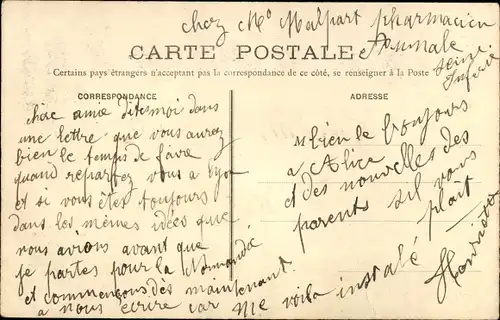 chez Mr Malpart pharmacien
Aumale
Seine
Inferie
CARTE POSTALE
Certains pays étrangers n'acceptant pas la correspondance de ce côté, se renseigner à la Poste
CORRESPONDANCE
chère amie dites moi dans
une lettre que vous aurez
bien le temps de faire
quand repartez vous a Lyon
et si vous êtes toujours
dans les mêmes idées que
nous avions avant que
je partes pour la Normandi
et commençons dès maintenant
a nous écrire car me voila installé
ADRESSE
bien le bonjours
a Alice
et des nouvelles des
parents sil vous
plait
Henriette